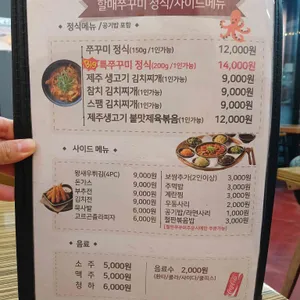 할매쭈꾸미 정식/사이드메뉴
정식메뉴 /공기밥 포함
쭈꾸미 정식(150g /1인가능) 12,000원
특쭈꾸미 정식(200g /1인가능) 14,000원
제주 생고기 김치찌개(1인가능) 9,000원
참치 김치찌개(1인가능) 9,000원
스팸 김치찌개(1인가능) 9,000원
제주생고기 불맛제육볶음(1인가능) 12,000원
사이드 메뉴
왕새우튀김(4PC) 9,000원
돈가스 9,000원
부추전 9,000원
김치전 9,000원
묵사발 6,000원
고르곤졸라피자 6,000원
보쌈추가(2인이상) 3,000원
주먹밥 3,000원
계란찜 3,000원
우동사리 2,000원
공기밥/라면사리 1,000원
철판볶음밥 3,000원
음료
소 주 5,000원
맥 주 5,000원
청 하 6,000원
음료수 2,000원